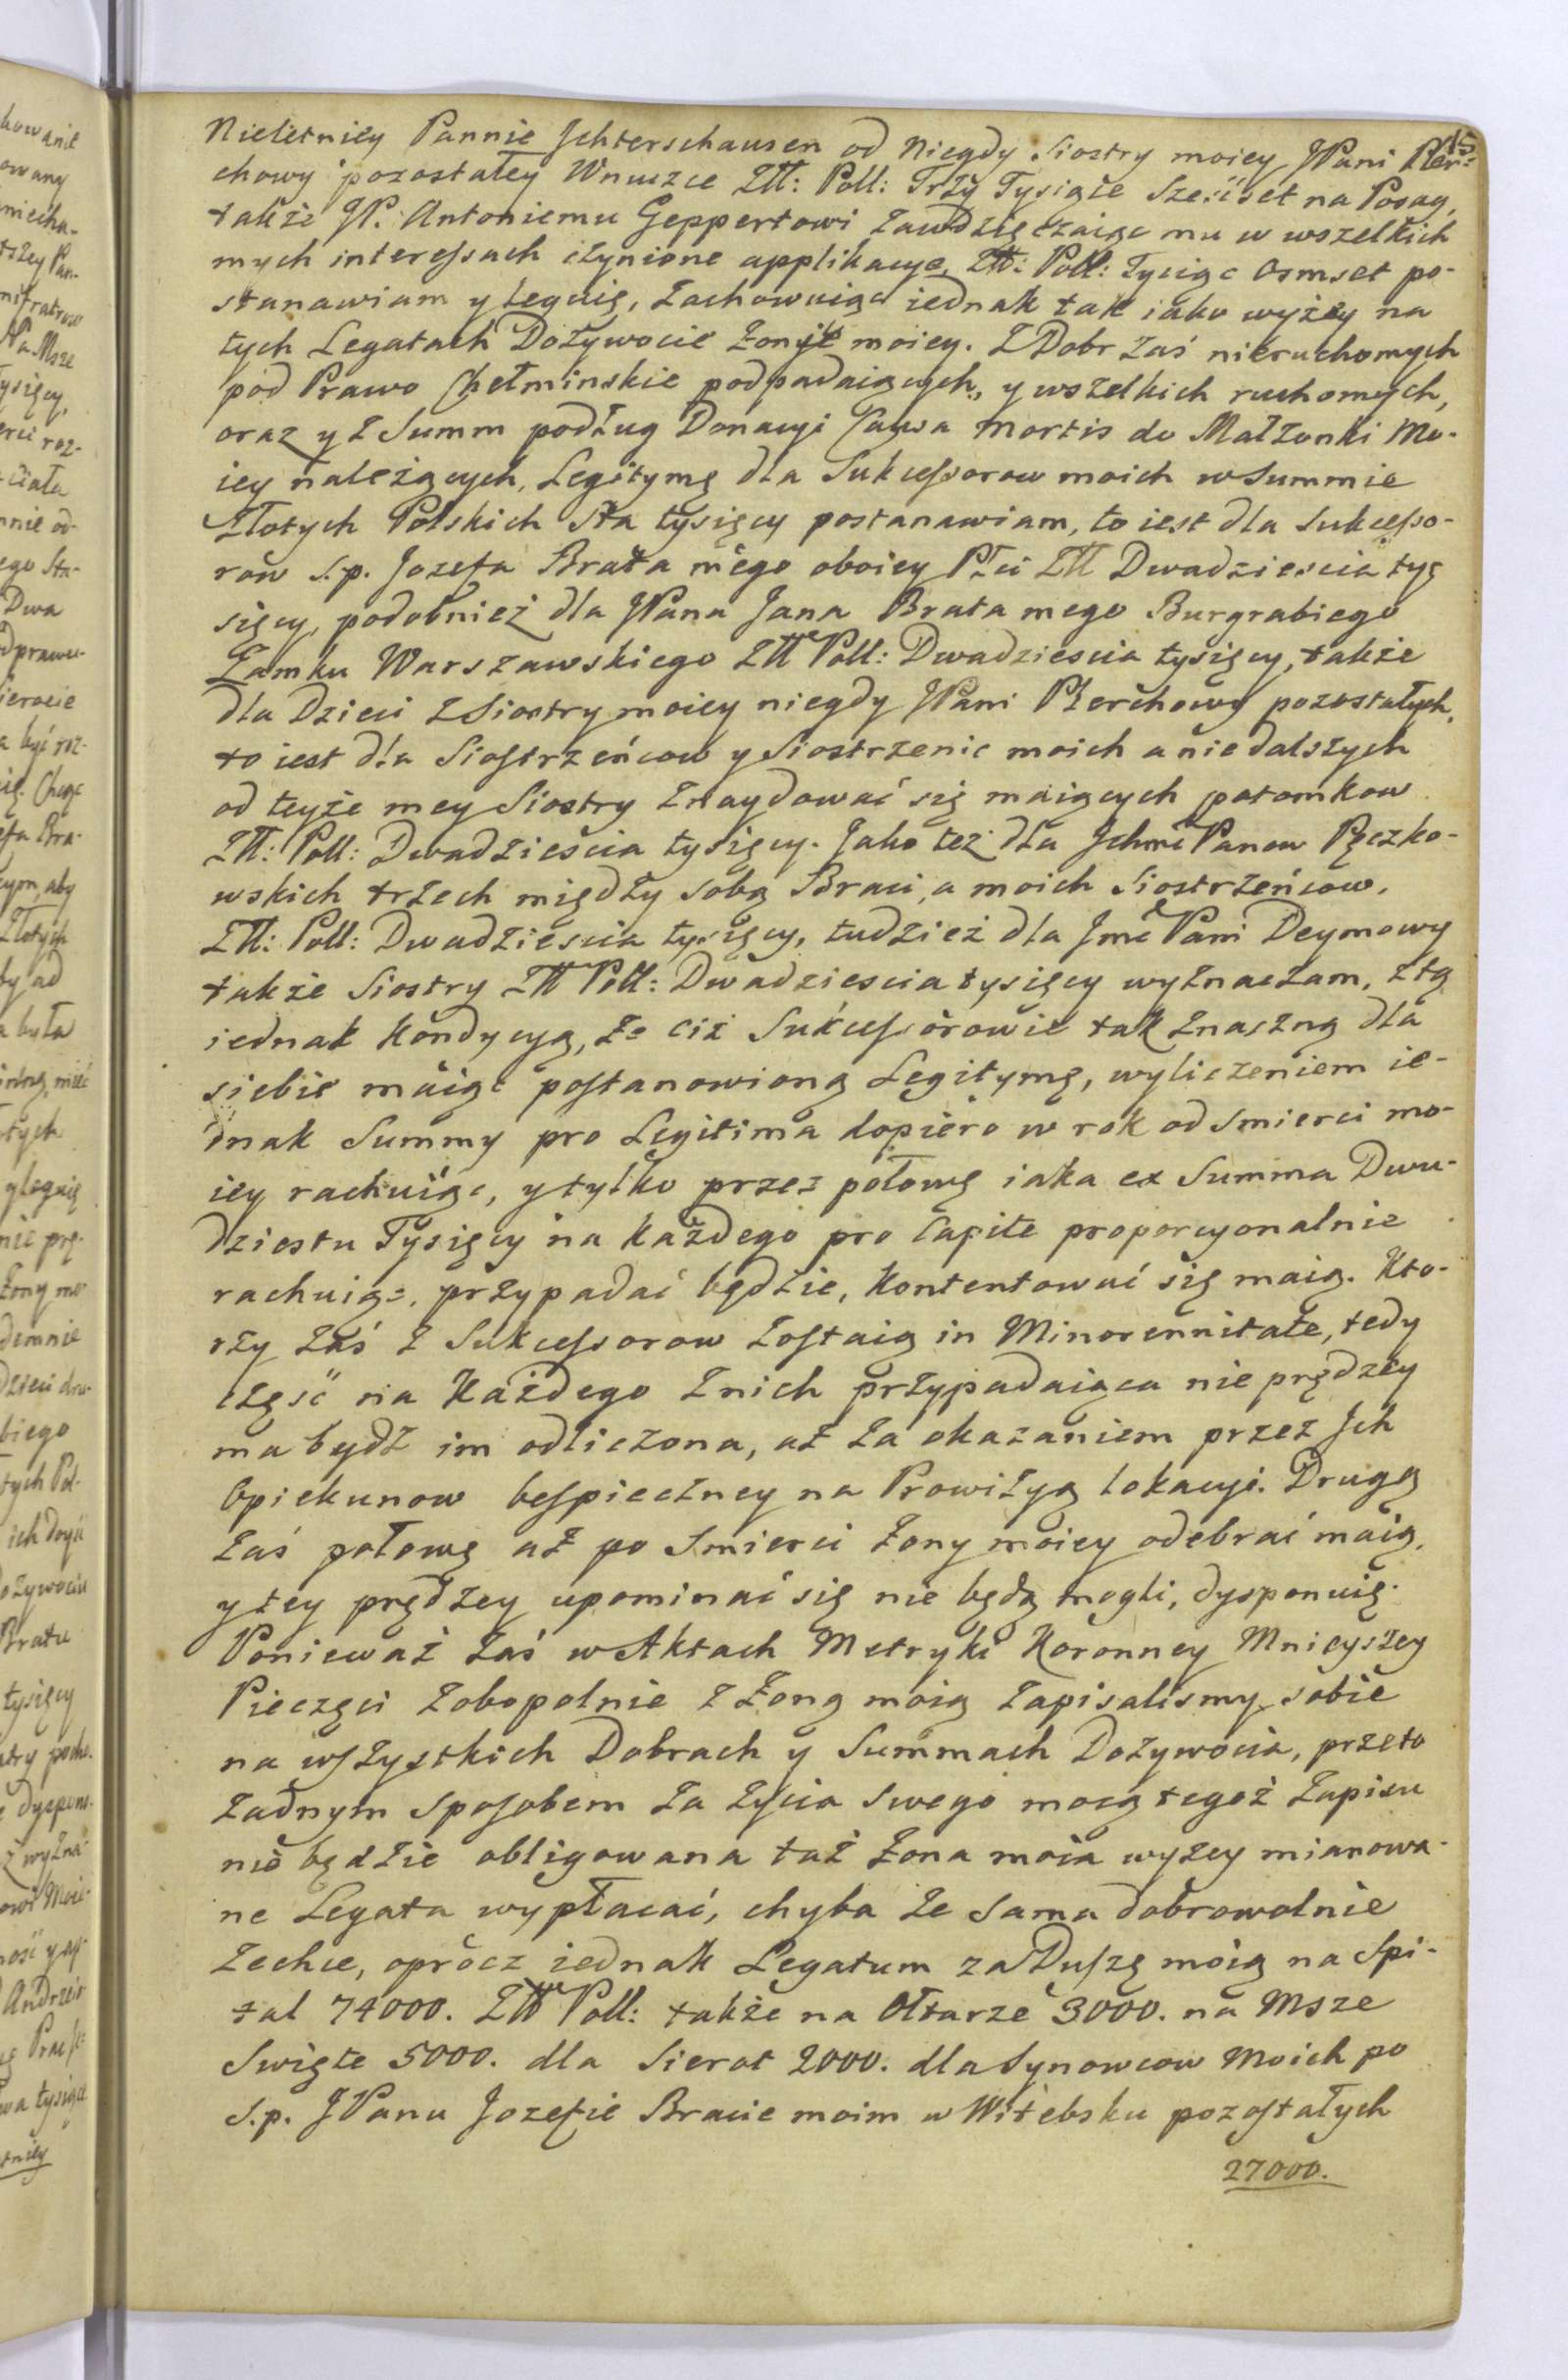 15
Nieletniey Pannie Jchterschausen od Niegdy Siostry moiey JPani Rer-
chowy pozostałey Wnuczce Złł: Poll: Trzy Tysiące Sześćset na Posag,
także JP. Antoniemu Geppertowi zawdzięczaiąc mu w wszelkich
mych interessach czynione applikacye, Złł: Poll: Tysiąc Osmset po-
stanawiam y leguię, zachowuiąc iednak tak iako wyżey na
tych Legatach Dożywocie Żony moiey. Z Dobr zaś nieruchomych
pod Prawo Chełminskie podpadaiących, y wszelkich ruchomych,
oraz y z Summ podług Donacyi Causa Mortis do Małżonki Mo-
iey należących, Legitymę dla Sukcessorow moich w Summie
Złotych Polskich Sta tysięcy postanawiam, to iest dla Sukcesso-
row S.p. Jozefa Brata mego oboiey Płci Złł Dwadziescia tyę
sięcy, podobnież dla JPana Jana Brata mego Burgrabiego
Zamku Warszawskiego Złł Poll: Dwadziescia tysięcy, także
dla Dzieci z Siostry moiey niegdy JPani Rerchowy pozostałych,
to iest dla Siostrzeńcow y Siostrzenic moich a nie dalszych
od teyże mey Siostry znaydować się maiących potomkow
Złł: Poll: Dwadzieścia tysięcy. Jako też dla Jchmć Panow Pęczko-
wskich trzech między sobą Braci, a moich Siostrzeńcow,
Złł: Poll: Dwadziescia tysięcy, tudzież dla Jmć Pani Deymowy
także Siostry Złł Poll: Dwadziescia tysięcy wyznaczam, z tą
iednak kondycyą, że ciż Sukcessorowie tak znaczną dla
siebie maiąc postanowioną Legitymę, wyliczeniem ie-
dnak Summy pro Legitima dopiero w rok od Smierci mo-
iey rachuiąc, y tylko przez połowę iaka ex Summa Dwu-
dziestu Tysięcy na każdego pro Capite proporcyonalnie
rachuiąc, przypadać będzie, kontentować się maią. Kto-
rzy zaś z Sukcessorow zostaią in Minorennitate, tedy
część na każdego z nich przypadaiąca nie prędzey
ma bydź im odliczona, aż za okazaniem przez Jch
Opiekunow bespieczney na Prowizyą lokacyi. Drugą
zaś połowę aż po Smierci Żony moiey odebrać maią,
y tey prędzey upominać się nie będą mogli, dysponuię.
Ponieważ zaś w Aktach Metryki Koronney Mnieyszey
Pieczęci zobopolnie z Żoną moią zapisalismy sobie
na wszystkich Dobrach y Summach Dożywocia, przeto
żadnym sposobem za życia Swego mocą tegoż zapisu
nie będzie obligowana taż Żona moia wyżey mianowa-
ne Legata wypłacać, chyba że Sama dobrowolnie
zechce, oprocz iednak Legatum za Duszę moią na Szpi-
tal 74000. Złł Poll: także na Ołtarze 3000. na Msze
Swięte 5000. dla Sierot 2000. dla Synowcow Moich po
S.p. JPanu Jozefie Bracie moim w Witebsku pozostałych
27000.